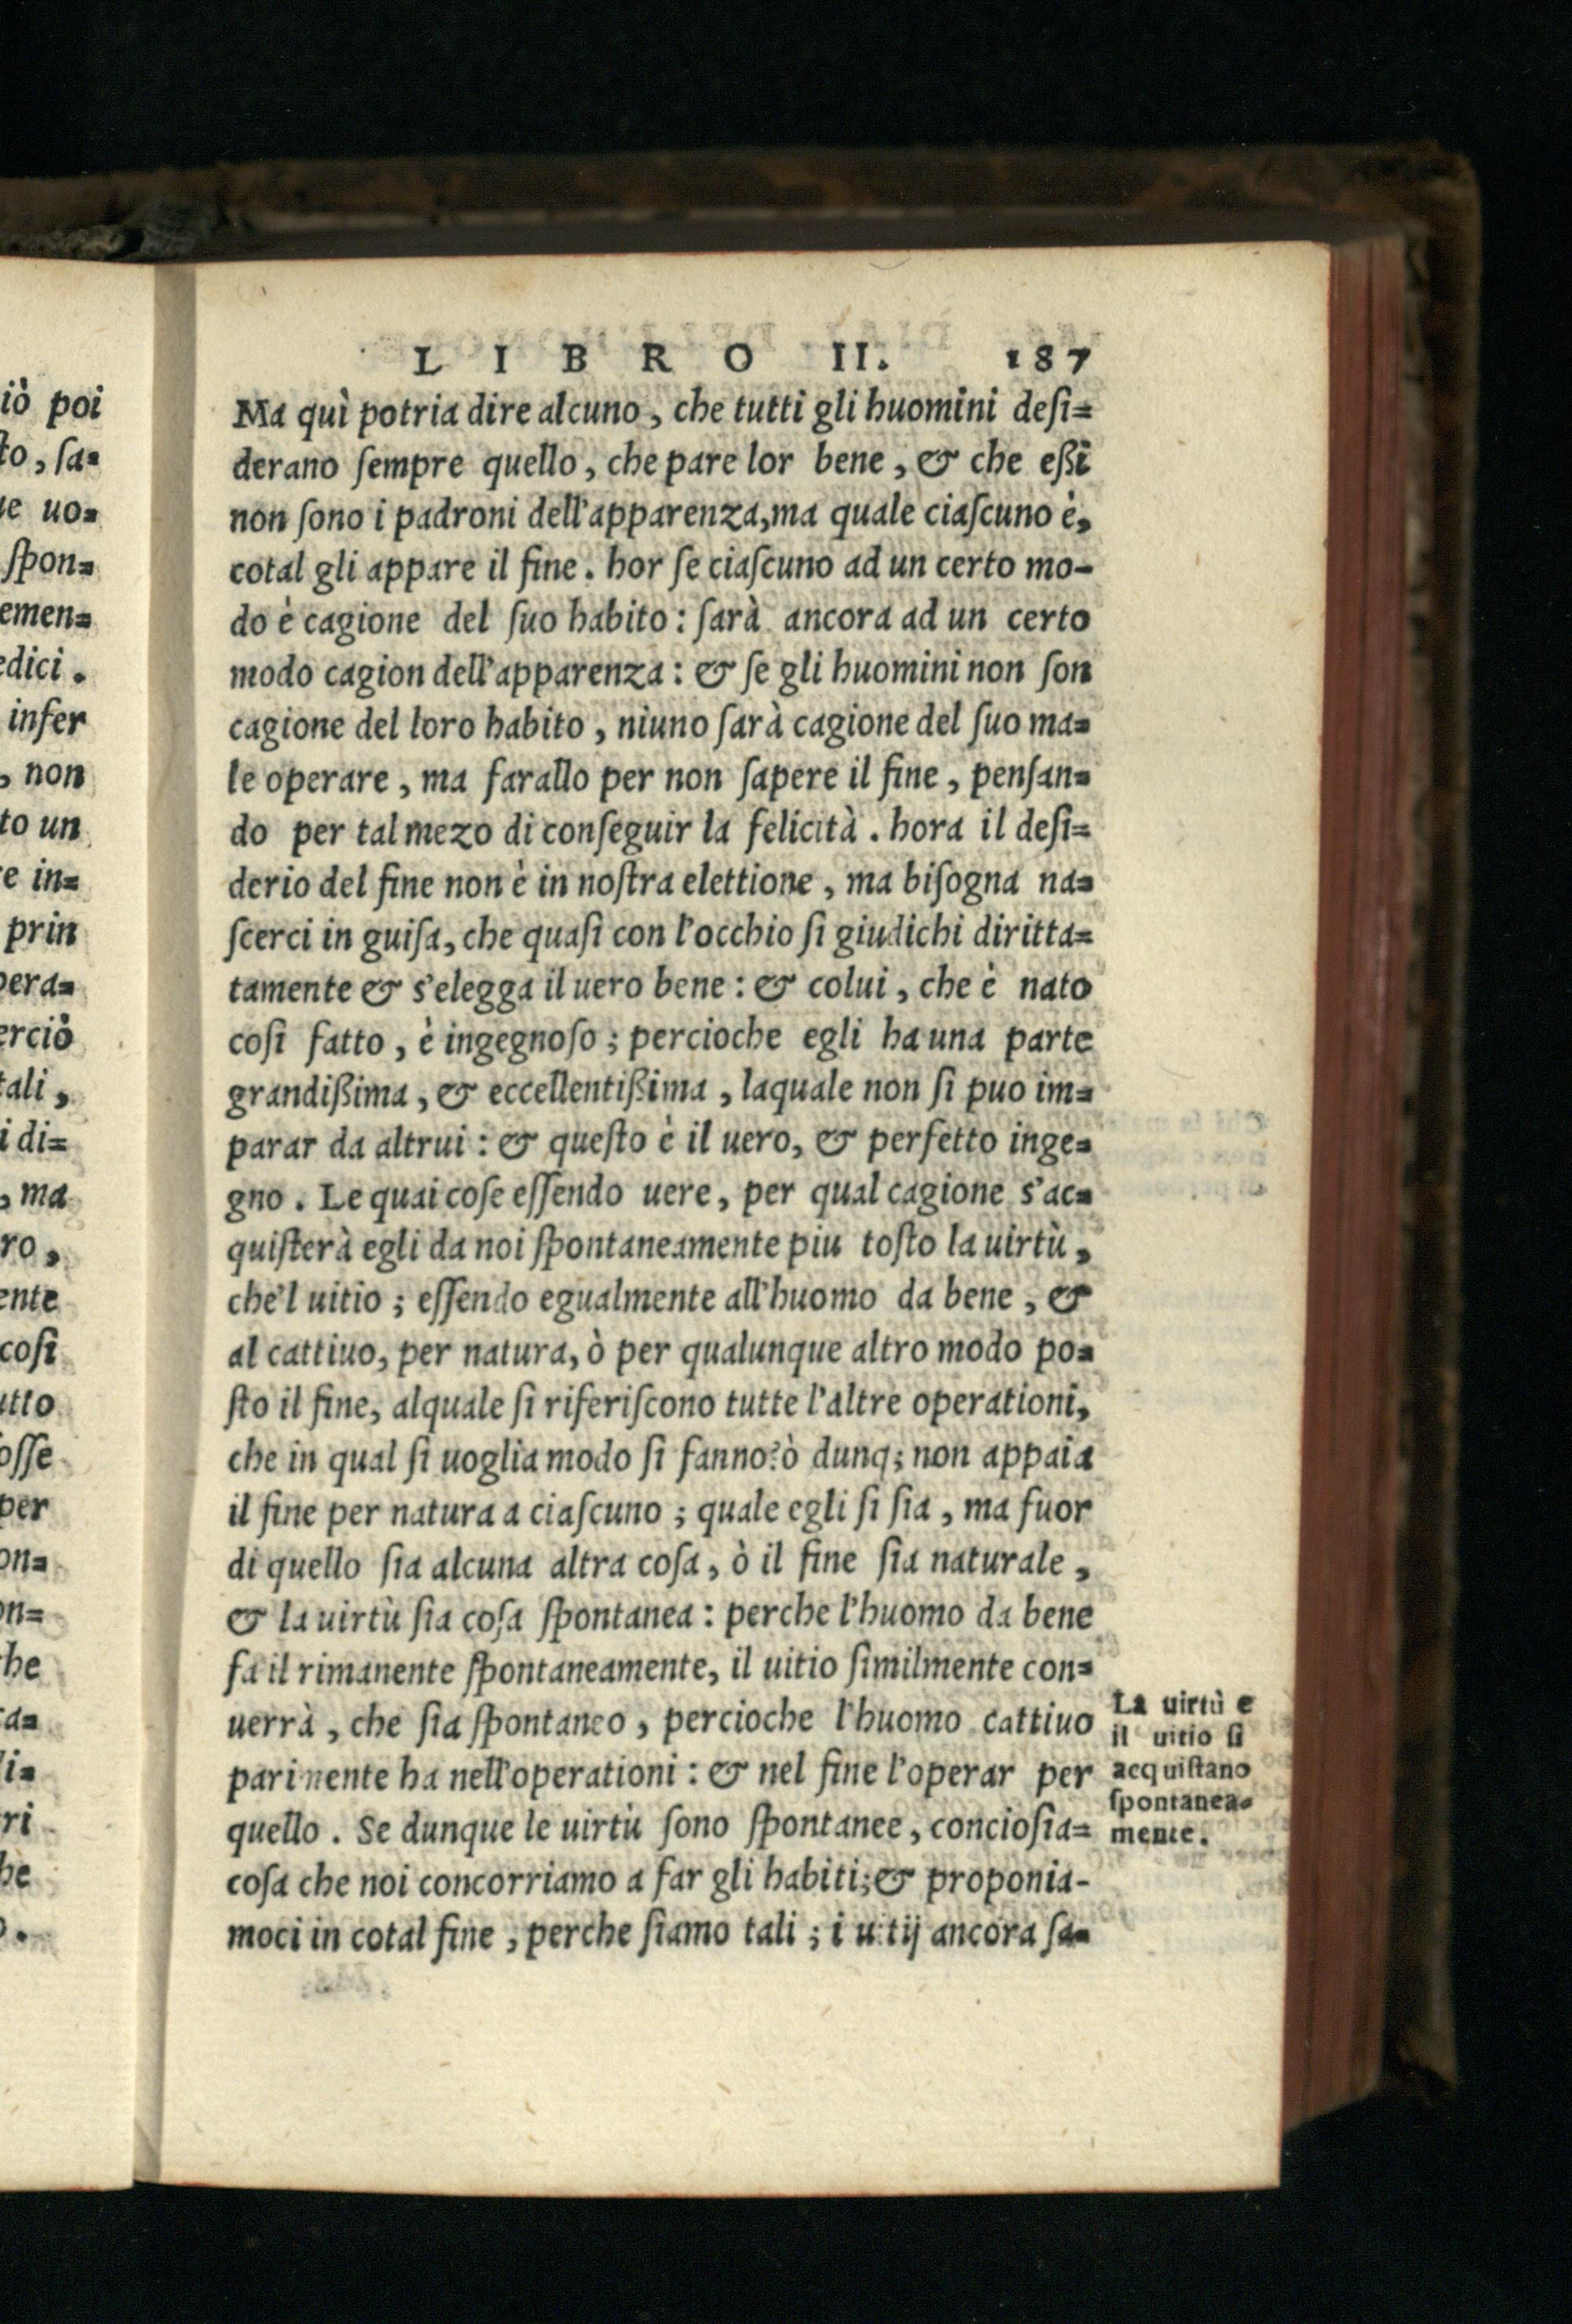 LIBRO II. 187
Ma quì potria dire alcuno, che tutti gli huomini deſi=
derano ſempre quello, che pare lor bene, & che eßi
non ſono i padroni dell'apparenza, ma quale ciaſcuno è,
cotal gli appare il fine. hor ſe ciaſcuno ad un certo mo-
do è cagione del ſuo habito: ſarà ancora ad un certo
modo cagion dell'apparenza: & ſe gli huomini non ſon
cagione del loro habito, niuno ſarà cagione del ſuo ma=
le operare, ma farallo per non ſapere il fine, penſan=
do per tal mezo di conſeguir la felicità. hora il deſi=
derio del fine non è in noſtra elettione, ma biſogna na=
ſcerci in guiſa, che quaſi con l'occhio ſi giudichi diritta=
tamente & s'elegga il uero bene: & colui, che è nato
coſi fatto, è ingegnoſo; percioche egli ha una parte
grandißima, & eccellentißima, laquale non ſi puo im=
parar da altrui: & queſto è il uero, & perfetto inge=
gno. Le quai coſe eſſendo uere, per qual cagione s'ac=
quiſterà egli da noi ſpontaneamente piu toſto la uirtù,
che'l uitio; eſſendo egualmente all'huomo da bene, &
al cattiuo, per natura, ò per qualunque altro modo po=
ſto il fine, alquale ſi riferiſcono tutte l'altre operationi,
che in qual ſi uoglia modo ſi fanno? ò dunq; non appaia
il fine per natura a ciaſcuno; quale egli ſi ſia, ma fuor
di quello ſia alcuna altra coſa, ò il fine ſia naturale,
& la uirtù ſia coſa ſpontanea: perche l'huomo da bene
fa il rimanente ſpontaneamente, il uitio ſimilmente con=
uerrà, che ſia ſpontaneo, percioche l'huomo cattiuo
parimente ha nell'operationi: & nel fine l'operar per
quello. Se dunque le uirtù ſono ſpontanee, concioſia=
coſa che noi concorriamo a far gli habiti; & proponia-
moci in cotal fine, perche ſiamo tali; i uitij ancora ſa=
La uirtù e
il uitio ſi
acquiſtano
ſpontanea=
mente.
iò poi
ſto, ſa=
ue uo=
ſpon=
emen=
edici.
infer
, non
to un
re in=
prin
pera=
erciò
tali,
i di=
, ma
ro,
ente
coſi
utto
oſſe
per
on=
on=
he
ra=
li=
ri
he
o.